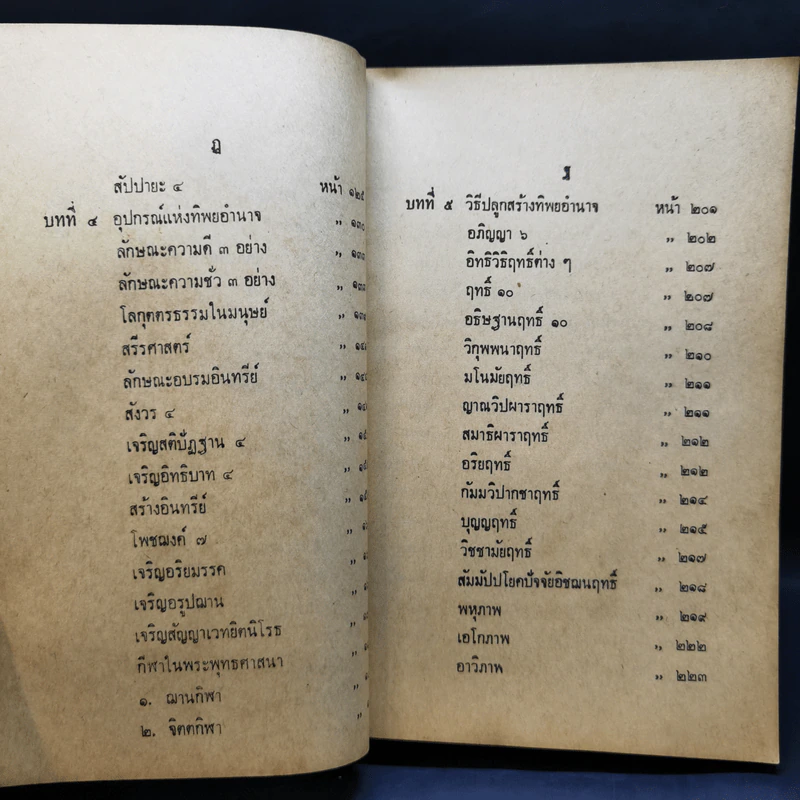 ฎ
สัปปายะ ๔ หน้า ๑๒๕
บทที่ ๔ อุปกรณ์แห่งทิพยอำนาจ ,, ๑๓๐
ลักษณะความดี ๓ อย่าง ,,
ลักษณะความชั่ว ๓ อย่าง ,,
โลกุตตรธรรมในมนุษย์ ,,
สรีรศาสตร์ ,,
ลักษณะอบรมอินทรีย์ ,,
สังวร ๔ ,,
เจริญสติปัฏฐาน ๔ ,,
เจริญอิทธิบาท ๔ ,,
สร้างอินทรีย์ ,,
โพชฌงค์ ๗ ,,
เจริญอริยมรรค ,,
เจริญอรูปฌาน ,,
เจริญสัญญาเวทยิตนิโรธ ,,
กีฬาในพระพุทธศาสนา ,,
๑. ฌานกีฬา ,,
๒. จิตตกีฬา ,,
ฐ
บทที่ ๕ วิธีปลูกสร้างทิพยอำนาจ หน้า ๒๐๑
อภิญญา ๖ ,, ๒๐๒
อิทธิวิธิฤทธิ์ต่าง ๆ ,, ๒๐๗
ฤทธิ์ ๑๐ ,, ๒๐๗
อธิษฐานฤทธิ์ ๑๐ ,, ๒๐๘
วิกุพพนาฤทธิ์ ,, ๒๑๐
มโนมัยฤทธิ์ ,, ๒๑๑
ญาณวิปผาราฤทธิ์ ,, ๒๑๑
สมาธิผาราฤทธิ์ ,, ๒๑๒
อริยฤทธิ์ ,, ๒๑๒
กัมมวิปากชาฤทธิ์ ,, ๒๑๔
บุญญฤทธิ์ ,, ๒๑๕
วิชชามัยฤทธิ์ ,, ๒๑๗
สัมมัปปโยคปัจจัยอิชฌนฤทธิ์ ,, ๒๑๘
พหุภาพ ,, ๒๑๙
เอโกภาพ ,, ๒๒๒
อาวิภาพ ,, ๒๒๓